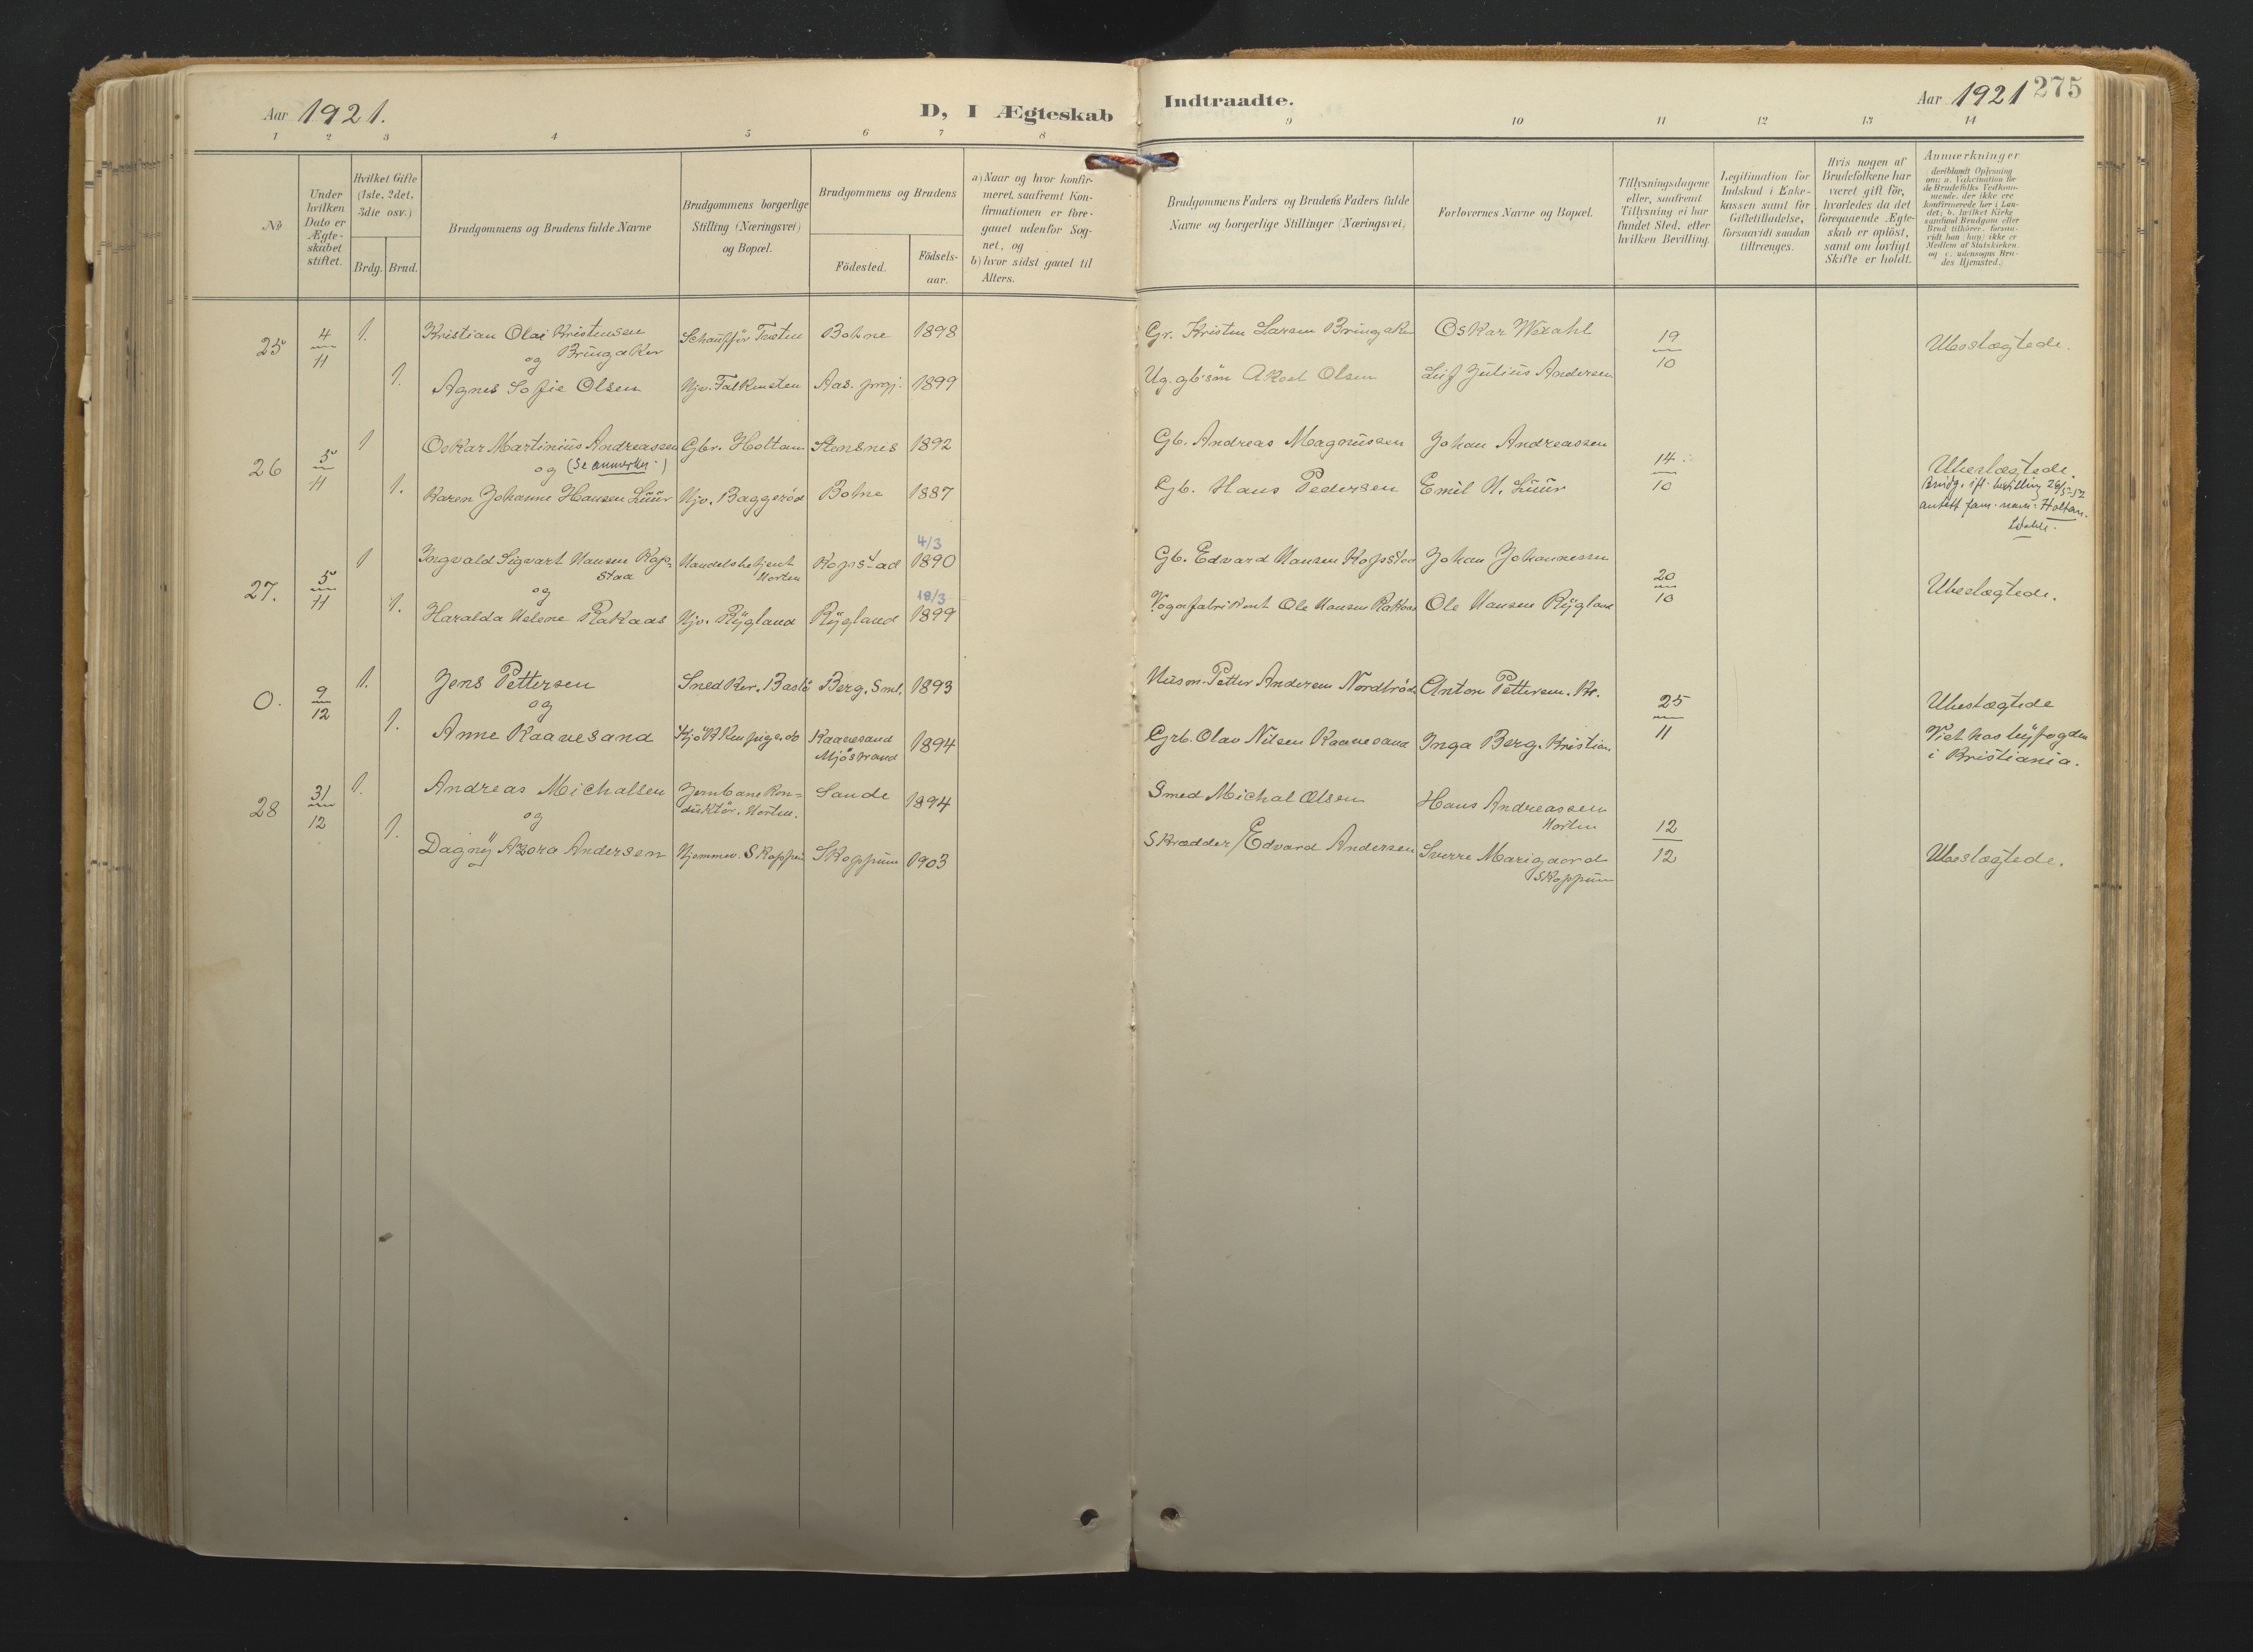 Aar 1921.
D, I Ægteskab Indtraadte.
Aar 1921 275
1 2 3 4 5 6 7 8 9 10 11 12 13 14
No
Under hvilken Dato er Ægteskabet stiftet.
Hvilket Gifte (1ste, 2det, 3die osv.)
Brdg. Brud.
Brudgommens og Brudens fulde Navne
Brudgommens borgerlige Stilling (Næringsvei) og Bopæl.
Brudgommens og Brudens
Födested.
Födselsaar.
a) Naar og hvor konfirmeret, saafremt Konfirmationen er foregaaet udenfor Sognet, og
b) hvor sidst gaaet til Alters.
Brudgommens Faders og Brudens Faders fulde Navne og borgerlige Stillinger (Næringsvei)
Forlovernes Navne og Bopæl.
Tillysningsdagene eller, saafremt Tillysning ei har fundet Sted, efter hvilken Bevilling.
Legitimation for Indskud i Enkekassen samt for Giftetilladelse, forsaavidt saadan tiltrænges.
Hvis nogen af Brudefolkene har været gift för, hvorledes da det foregaaende Ægteskab er oplöst, samt om lovligt Skifte er holdt.
Anmerkninger
(deriblandt Oplysning om: a. Vakcination for de Brudefolks Vedkommende, der ikke ere konfirmerede her i Landet; b. hvilket Kirkesamfund Brudgom eller Brud tilhörer, forsaavidt han (hun) ikke er Medlem af Statskirken, og c. udensogns Brudes Hjemsted.)
25 4/11 1. Kristian Olai Kristensen Bringaker Schaufför Bohne 1898 Gr. Kristen Larsen Bringaker Oskar Wexahl 19/10 Ubeslægtede.
og
1. Agnes Sofie Olsen Hjv. Falkensten Aas. prgj. 1899 Ug. gb.sön Aksel Olsen Leif Julius Andersen
26 5/11 1 Oskar Martinius Andreassen Gbr. Holtan Stensnis 1892 Gb. Andreas Magnussen Johan Andreassen 14/10 Ubeslægtede.
og (se anmerkn.)
1. Karen Johanne Hansen Luur Hjv. Baggeröd Bohne 1887 Gb. Hans Pedersen Emil H. Luur
Brudg. ifl. bevilling 26/5-52
antatt fam.-navn: Holtan.
27. 5/11 1 Ingvald Sigvart Hansen Kopstad Handelsbetjent Horten Kopstad 4/3 1890 Gb. Edvard Hansen Kopstad Johan Johannessen 20/10 Ubeslægtede.
og
1. Haralda Helene Rakaas Hjv. Rygland Rygland 18/3 1899 Vognfabrikant Ole Hansen Rakaas Ole Hansen Rygland
0. 9/12 1. Jens Pettersen Snedker. Bastö Berg, Sml. 1893 Husm. Petter Andersen Nordbröd Anton Pettersen. Kr. 25/11 Ubeslægtede
og
1. Anne Kaavesand Kjökkenpige do Kaavesand Mjösstrand 1894 Grb. Olav Nilsen Kaavesand Inga Berg. Kristian
Viet hos byfogden
i Kristiania.
28 31/12 1. Andreas Michalsen Jernbanekonduktör. Horten. Sande 1894 Smed Michal Olsen Hans Andreassen Horten 12/12
og
1. Dagny Azora Andersen Hjemmev. Skoppum Skoppum 1903 Skrædder Edvard Andersen Sverre Marigaard Skoppum Ubeslægtede.